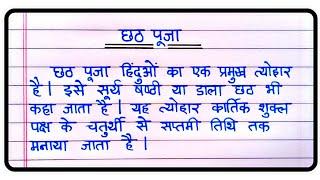 छठ पूजा
छठ पूजा हिंदुओं का एक प्रमुख त्योहार
है | इसे सूर्य षष्ठी या डाला छठ भी
कहा जाता है | यह त्योहार कार्तिक शुक्ल
पक्ष के चतुर्थी से सप्तमी तिथि तक
मनाया जाता है |